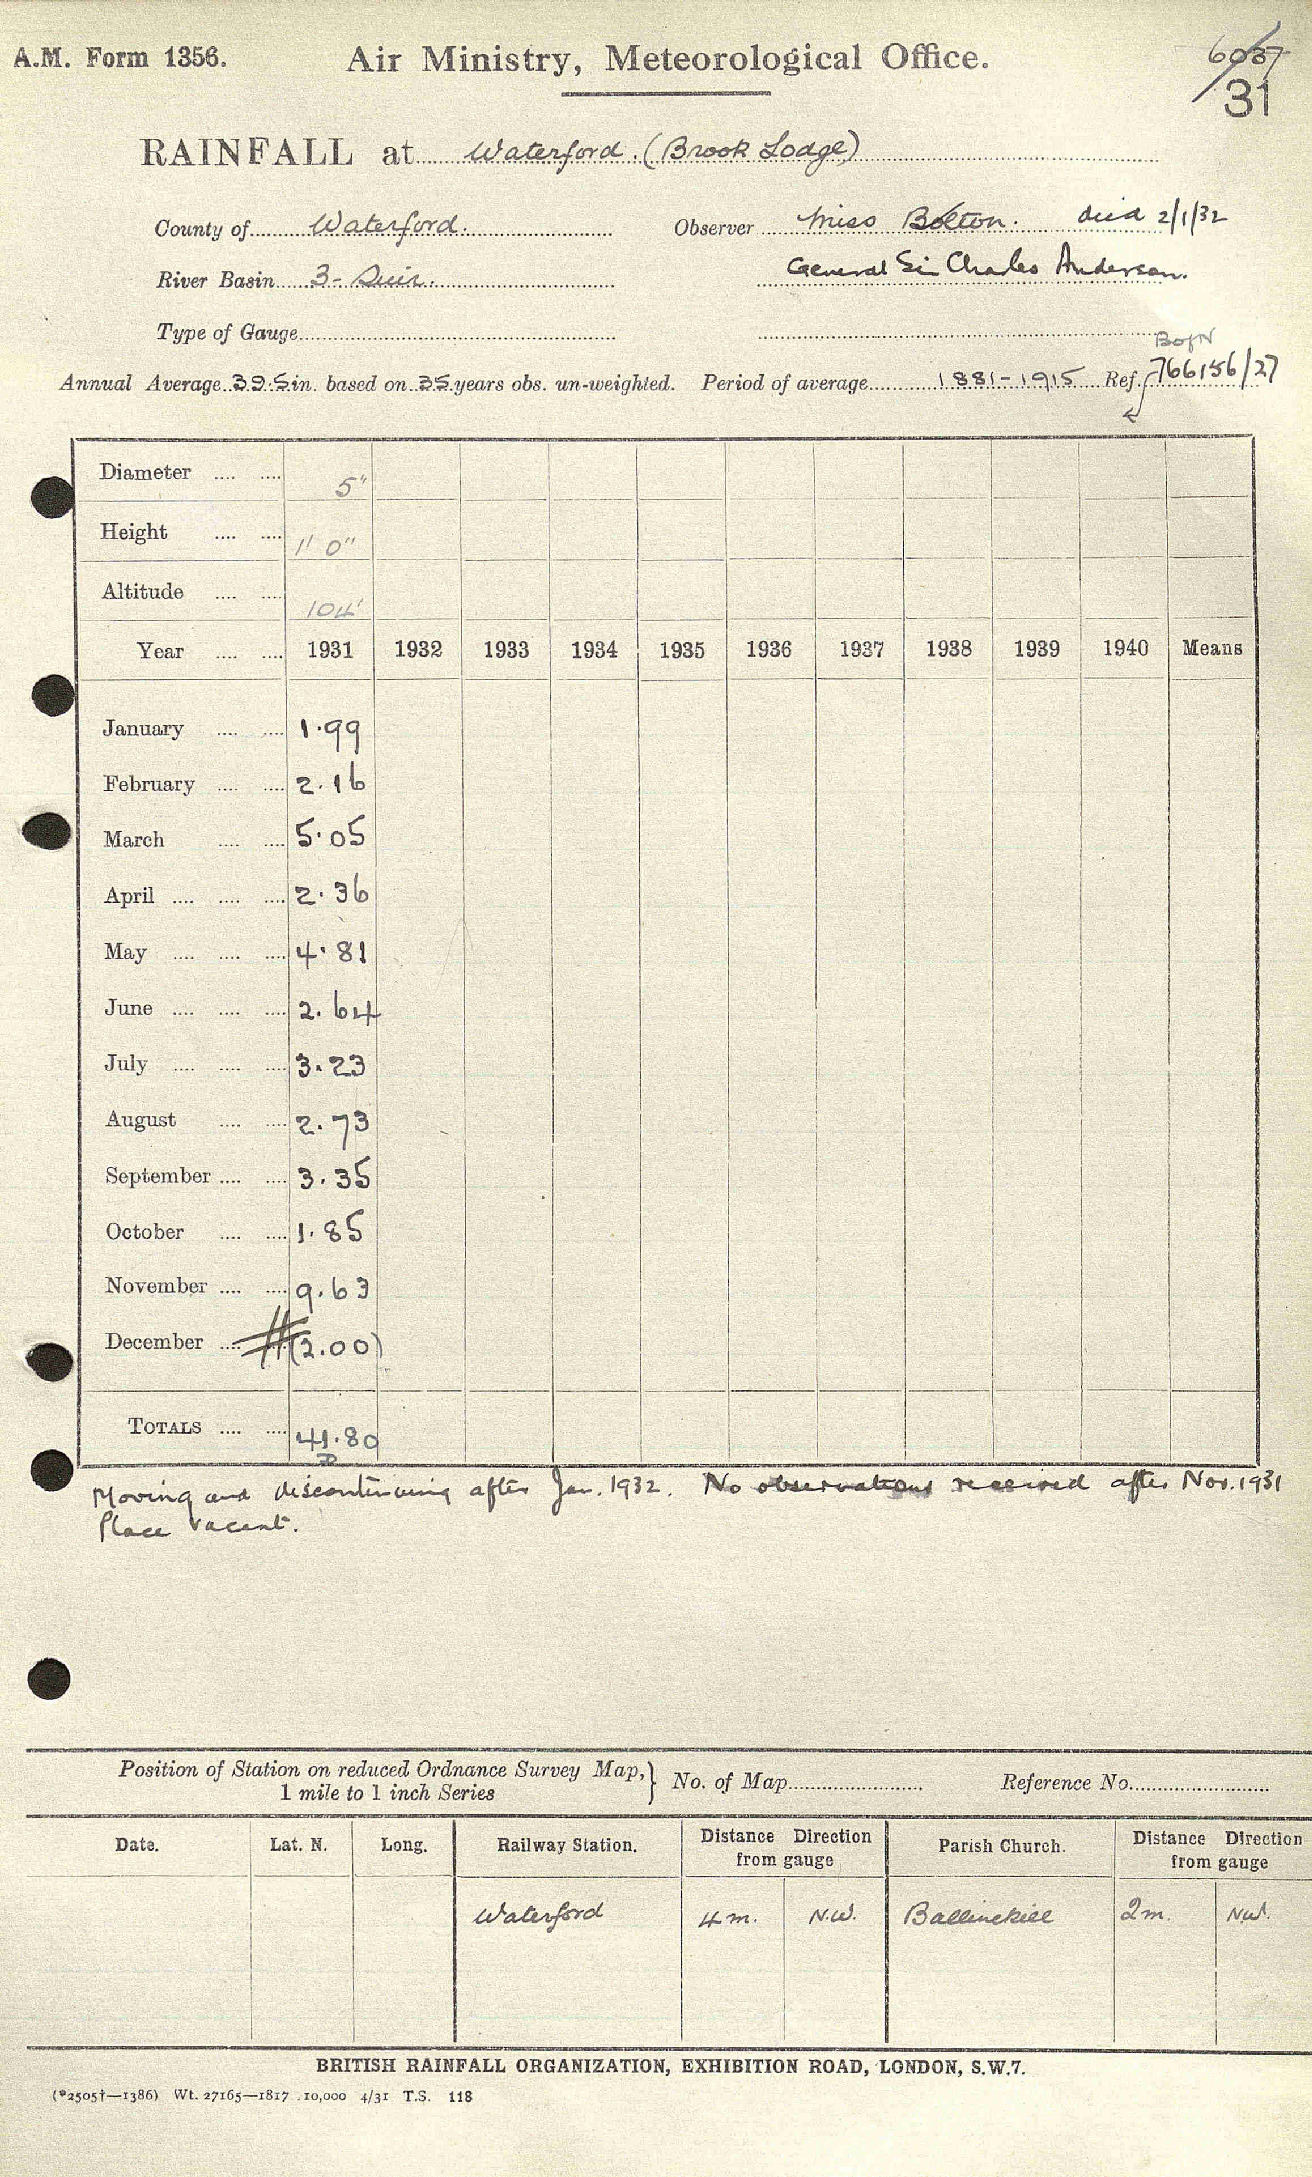 A.M. Form 1356. Air Ministry, Meteorological Office. 6037
31
RAINFALL at Waterford. (Brook Lodge)
County of Waterford. Observer Miss Bolton. died 2/1/32
River Basin 3- Suir. General Sir Charles Anderson.
Type of Gauge
Annual Average 39.5 in. based on 35 years obs. un-weighted. Period of average 1881-1915 Ref. 766156/27
Diameter .... .... 5"
Height .... .... 1' 0"
Altitude .... .... 104'
Year .... .... 1931 1932 1933 1934 1935 1936 1937 1938 1939 1940 Means
January .... .... 1.99
February .... .... 2.16
March .... .... 5.05
April .... .... .... 2.36
May .... .... .... 4.81
June .... .... .... 2.64
July .... .... .... 3.23
August .... .... 2.73
September .... .... 3.35
October .... .... 1.85
November .... .... 9.63
December .... # (2.00)
TOTALS .... .... 41.80
Moving and discontinuing after Jan. 1932. No observations received after Nov. 1931
Place vacant.
Position of Station on reduced Ordnance Survey Map, } No. of Map Reference No.
1 mile to 1 inch Series
Date. Lat. N. Long. Railway Station. Distance Direction from gauge Parish Church. Distance Direction from gauge
Waterford 4 m. N.W. Ballinakill 2 m. N.W.
BRITISH RAINFALL ORGANIZATION, EXHIBITION ROAD, LONDON, S.W.7.
(*2505†—1386) Wt. 27165—1817 10,000 4/31 T.S. 118